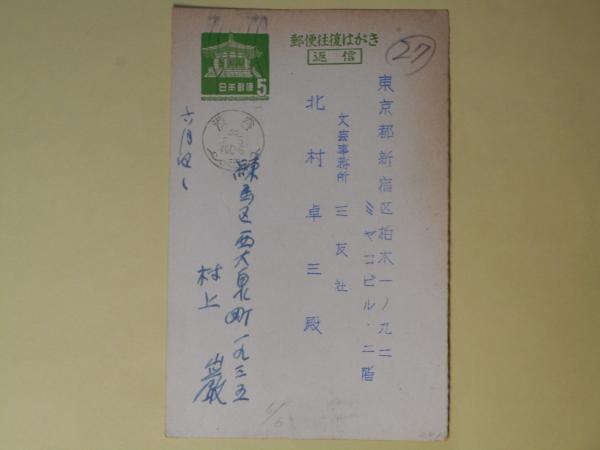 郵便往復はがき
返信
27
日本郵便
5
東京都新宿区柏木一ノ九二
ミヤコビル・二階
文芸事務所 三友社
北村卓三殿
六月
練馬区西大泉町一九三五
村上 巌